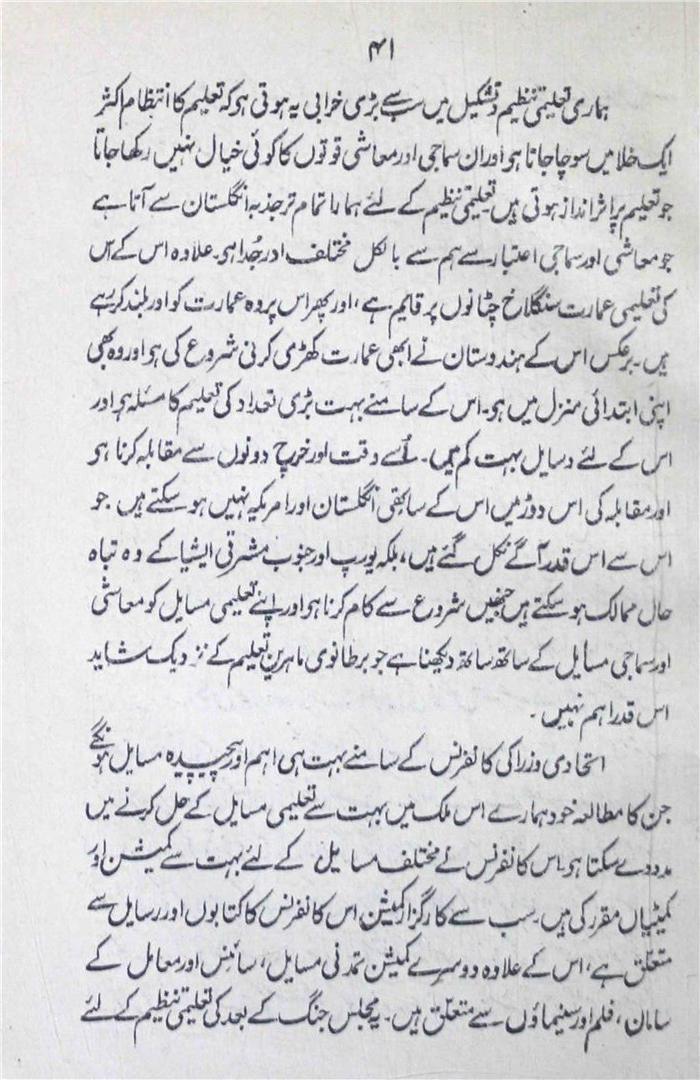 ۴۱
ہماری تعلیمی تنظیم و تشکیل میں سب سے بڑی خرابی یہ ہوتی ہو کہ تعلیم کا انتظام اکثر
ایک خلا میں سوچا جاتا ہو اور ان سماجی اور معاشی قوتوں کا کوئی خیال نہیں رکھا جاتا
جو تعلیم پر اثر انداز ہوتی ہیں۔ تعلیمی تنظیم کے لئے ہمارا تمام تر جذبہ انگلستان سے آتا ہے
جو معاشی اور سماجی اعتبار سے ہم سے بالکل مختلف اور جُدا ہی۔ علاوہ اس کے اس
کی تعلیمی عمارت سنگلاخ چٹانوں پر قایم ہے، اور پھر اس پر وہ عمارت کو اور بلند کر رہے
ہیں۔ برعکس اس کے ہندوستان نے ابھی عمارت کھڑی کرنی شروع کی ہو اور وہ بھی
اپنی ابتدائی منزل میں ہو۔ اس کے سامنے بہت بڑی تعداد کی تعلیم کا مسئلہ ہو اور
اس کے لئے وسایل بہت کم ہیں۔ اُسے وقت اور خرچ دونوں سے مقابلہ کرنا ہو
اور مقابلہ کی اس دوڑ میں اس کے ساتھی انگلستان اور امریکہ نہیں ہو سکتے ہیں جو
اس سے اس قدر آگے نکل گئے ہیں، بلکہ یورپ اور جنوب مشرقی ایشیا کے وہ تباہ
حال ممالک ہو سکتے ہیں جنھیں شروع سے کام کرنا ہو اور اپنے تعلیمی مسایل کو معاشی
اور سماجی مسایل کے ساتھ ساتھ دیکھنا ہے جو برطانوی ماہرین تعلیم کے نزدیک شاید
اس قدر اہم نہیں۔
اتحادی وزرا کی کانفرنس کے سامنے بہت ہی اہم اور پیچیدہ مسایل ہونگے
جن کا مطالعہ خود ہمارے اس ملک میں بہت سے تعلیمی مسایل کے حل کرنے میں
مدد دے سکتا ہو۔ اس کانفرنس نے مختلف مسایل کے لئے بہت سے کمیشن اور
کمیٹیاں مقرر کی ہیں۔ سب سے کارگزار کمیشن اس کانفرنس کا کتابوں اور رسایل سے
متعلق ہے، اس کے علاوہ دوسرے کمیشن تمدنی مسایل، سائنس اور معامل کے
سامان، فلم اور سنیماؤں سے متعلق ہیں۔ یہ مجلس جنگ کے بعد کی تعلیمی تنظیم کے لئے